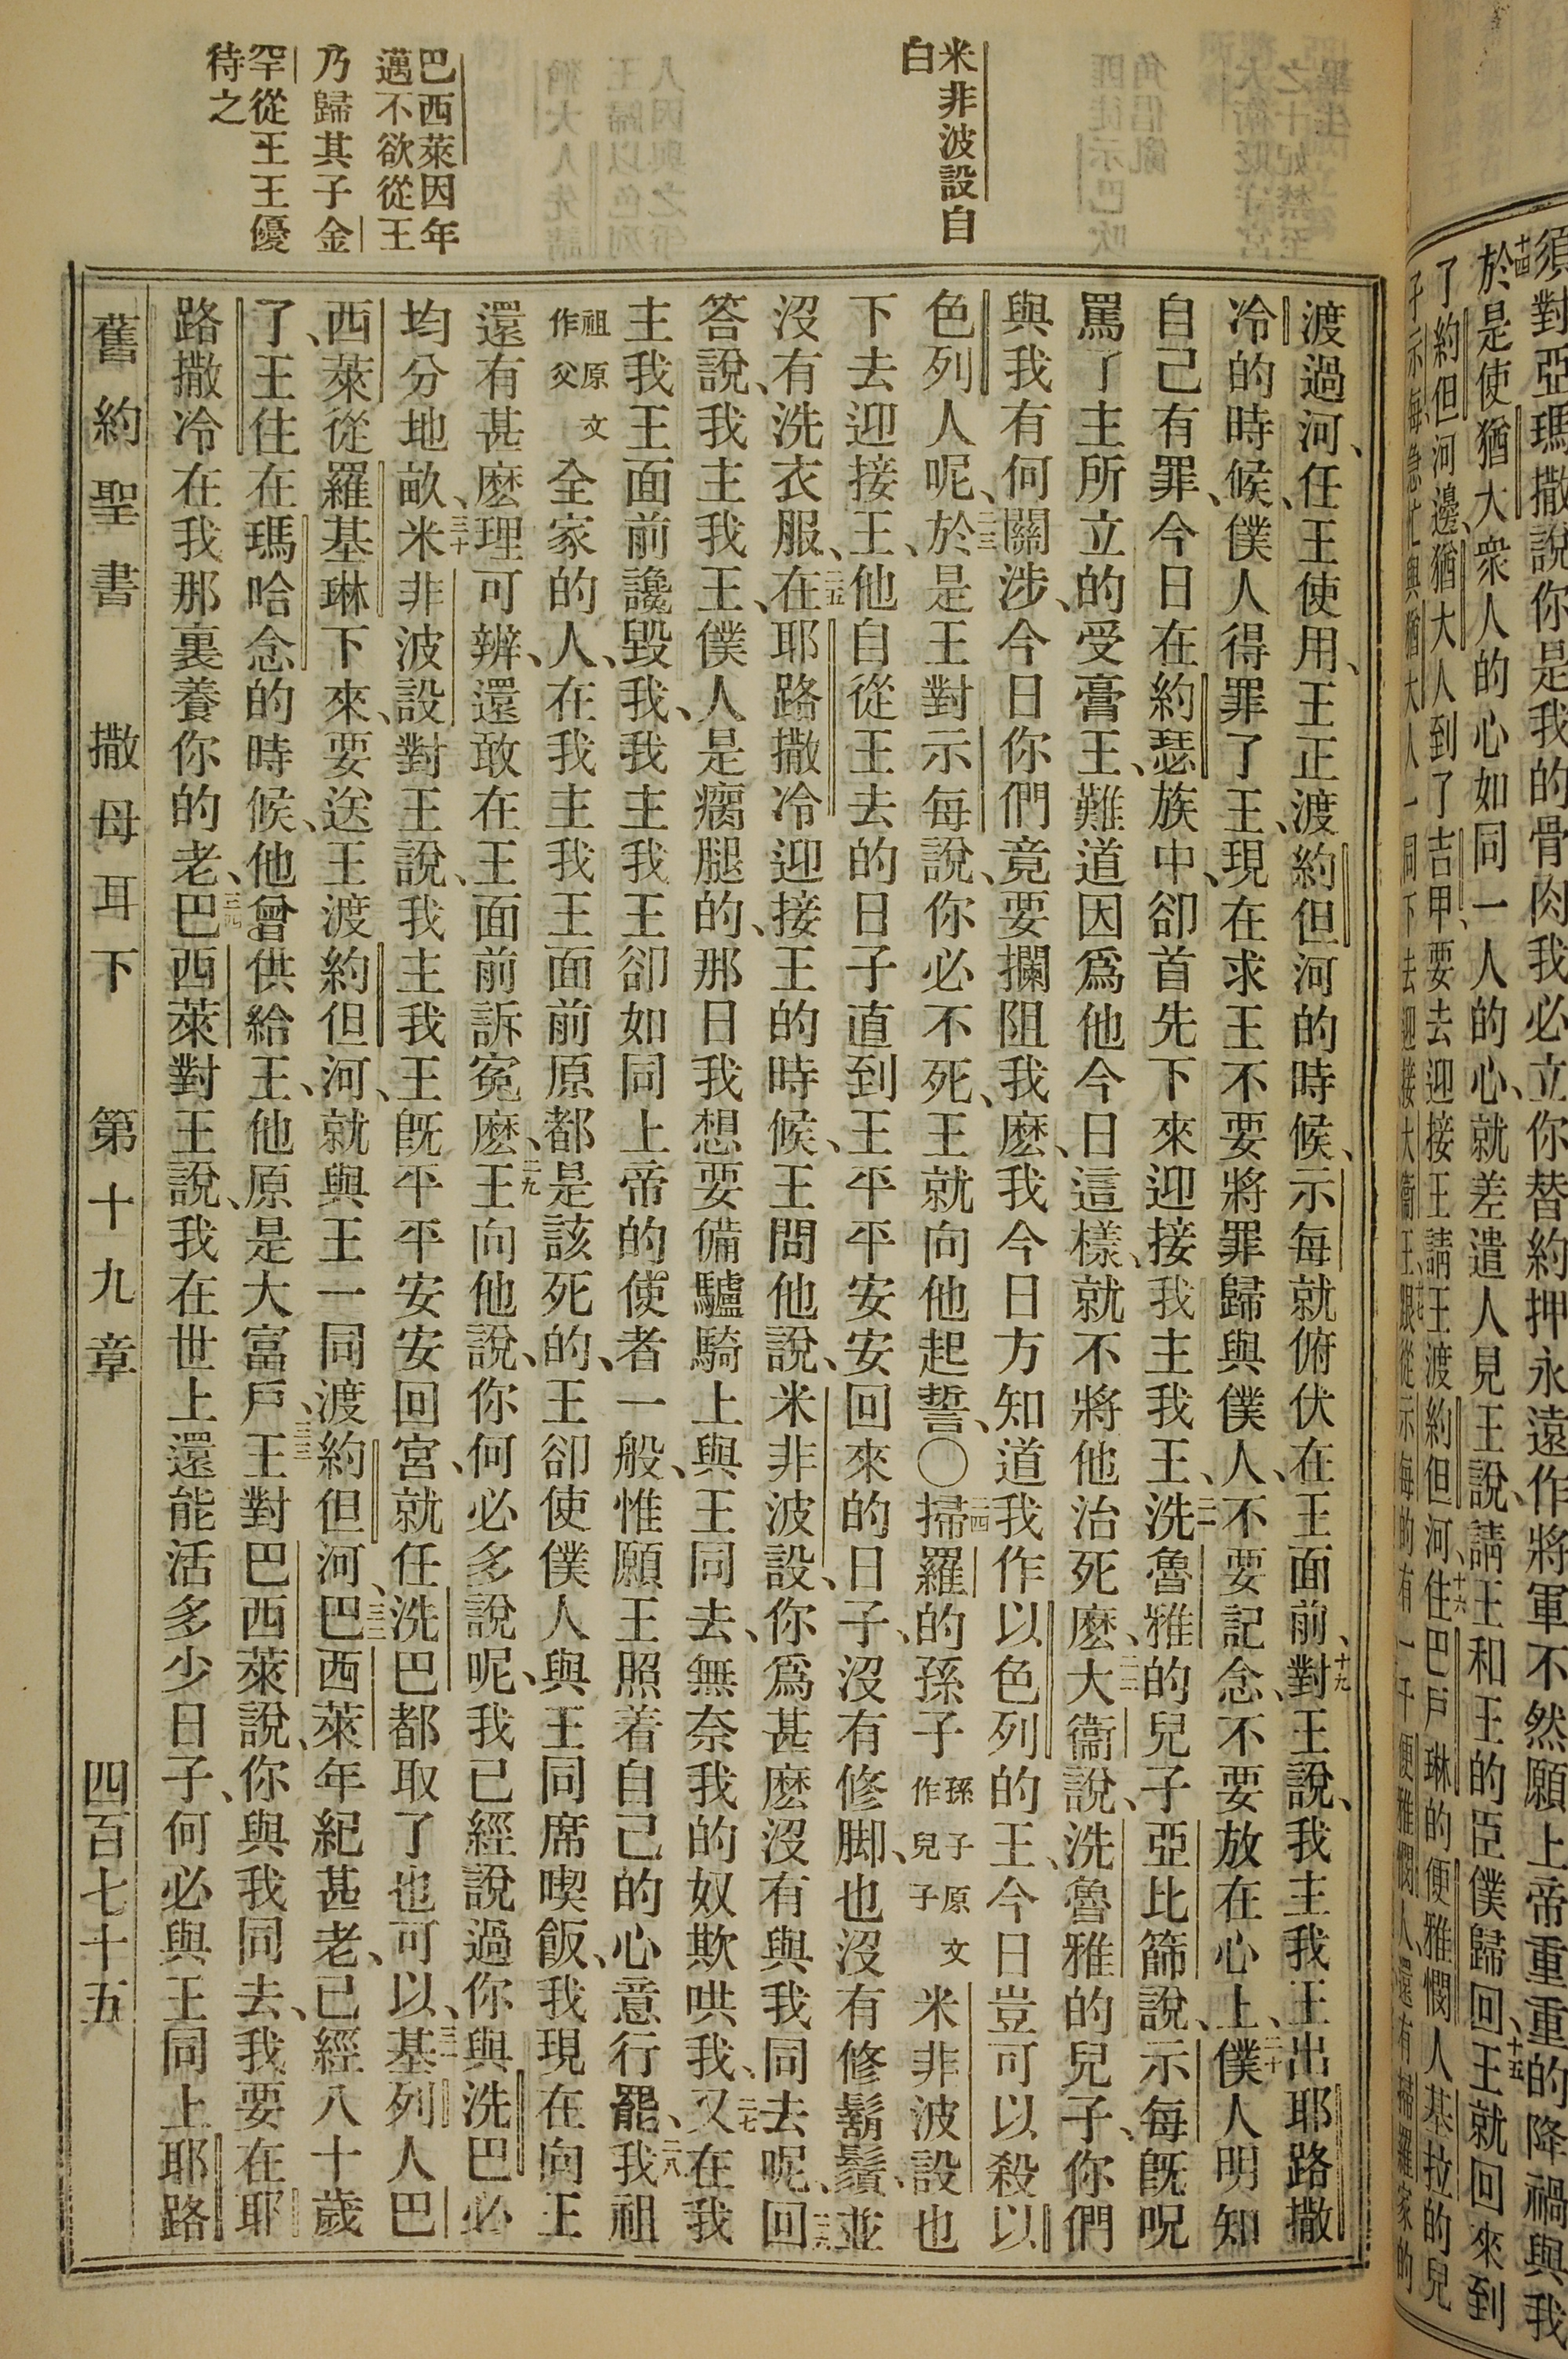 須對亞瑪撒說你是我的骨肉我必立你替約押永遠作將軍不然願上帝重重的降禍與我
十四於是使猶大衆人的心如同一人的心、就差遣人見王說、請王和王的臣僕歸回、十五王就回來到
了約但河邊、猶大人到了吉甲、要去迎接王請王渡約但河、十六住巴戶琳的便雅憫人基拉的兒
子示每急忙與猶大人一同下去迎接大衛王、跟從示每的有一千便雅憫人、還有掃羅家的
米非波設自
白
巴西萊因年
邁不欲從王
乃歸其子金
罕從王王優
待之
渡過河、任王使用、王正渡約但河的時候、示每就俯伏在王面前、十九對王說、我主我王出耶路撒
冷的時候、僕人得罪了王、現在求王不要將罪歸與僕人、不要記念、不要放在心上、二十僕人明知
自己有罪、今日在約瑟族中、卻首先下來迎接我主我王、二一洗魯雅的兒子亞比篩說、示每既呪
罵了主所立的受膏王、難道因爲他今日這樣、就不將他治死麽、二二大衞說、洗魯雅的兒子、你們
與我有何關涉、今日你們竟要攔阻我麽、我今日方知道我作以色列的王、今日豈可以殺以
色列人呢、二三於是王對示每說、你必不死、王就向他起誓、〇二四掃羅的孫子孫子原文作兒子米非波設也
下去迎接王、他自從王去的日子直到王平平安安回來的日子、沒有修脚、也沒有修鬍鬚、並
沒有洗衣服、二五在耶路撒冷迎接王的時候、王問他說、米非波設、你爲甚麽沒有與我同去呢、二六回
答說、我主我王、僕人是瘸腿的、那日我想要備驢騎上與王同去、無奈我的奴欺哄我、二七又在我
主我王面前讒毀我、我主我王卻如同上帝的使者一般、惟願王照着自己的心意行罷、二八我祖
祖原文作父全家的人、在我主我王面前原都是該死的、王卻使僕人與王同席喫飯、我現在向王
還有甚麽理可辨、還敢在王面前訴寃麽、二九王向他說、你何必多說呢、我已經說過你與洗巴必
均分地畝、三十米非波設對王說、我主我王旣平平安安回宮、就任洗巴都取了也可以、三一基列人巴
西萊從羅基琳下來、要送王渡約但河、就與王一同渡約但河、三二巴西萊年紀甚老、已經八十歲
了、王住在瑪哈念的時候、他曾供給王、他原是大富戶、三三王對巴西萊說、你與我同去、我要在耶
路撒冷在我那裏養你的老、三四巴西萊對王說、我在世上還能活多少日子、何必與王同上耶路
舊約聖書　撒母耳下　第十九章　四百七十五